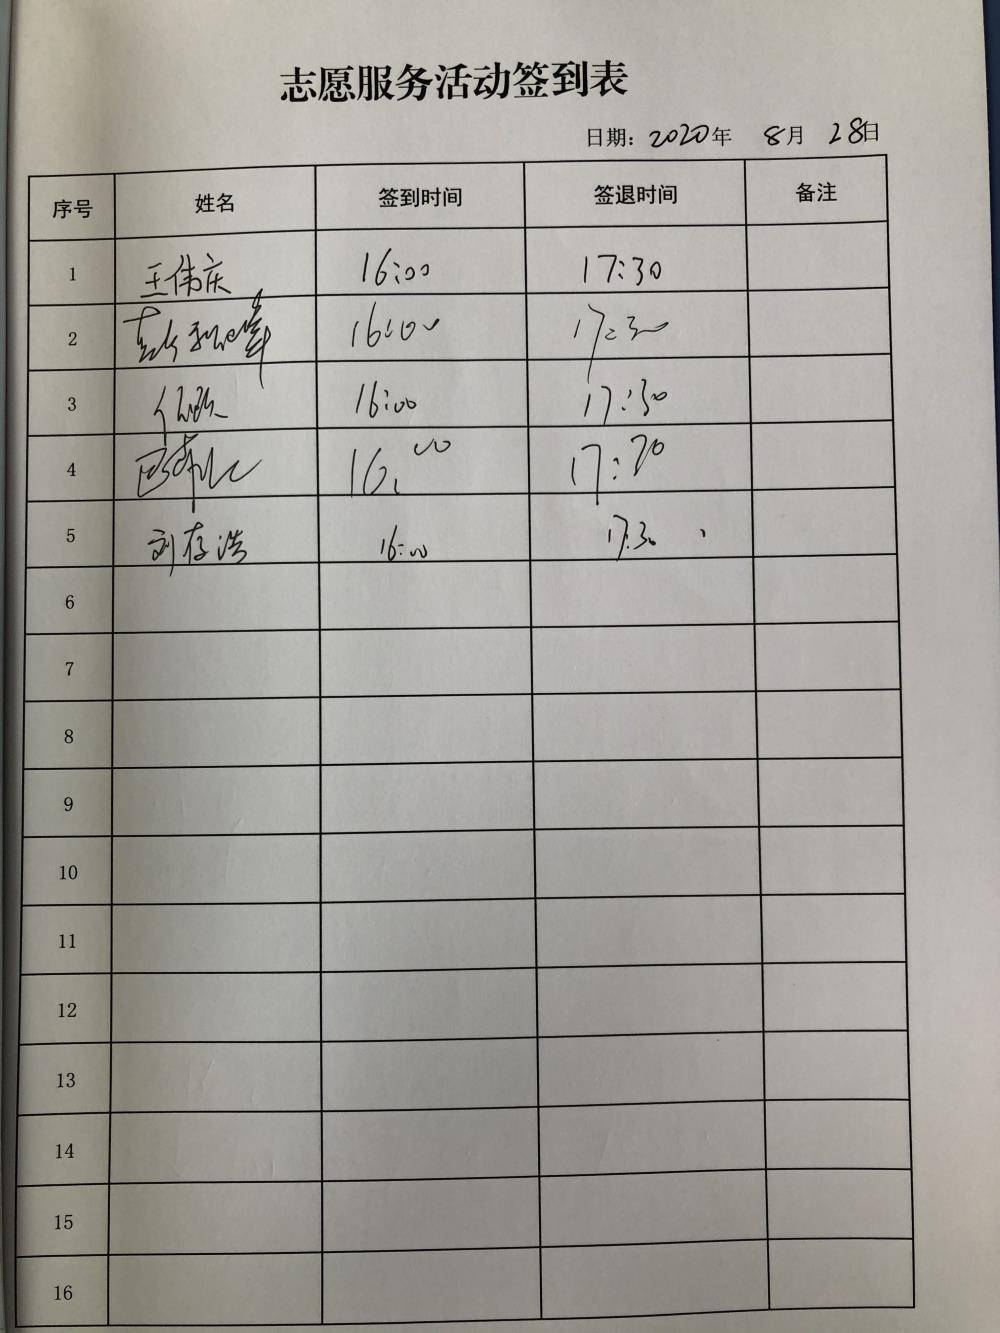 志愿服务活动签到表
日期: 2020年 8月 28日
序号 姓名 签到时间 签退时间 备注
1 王伟庆 16:00 17:30
2 16:00 17:30
3 16:00 17:30
4 16:00 17:30
5 刘存浩 16:00 17:30
6
7
8
9
10
11
12
13
14
15
16